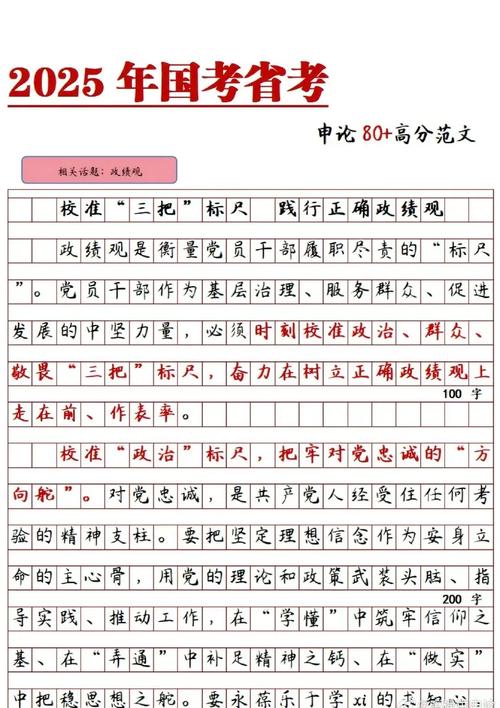 2025 年国考省考
申论 80+高分范文
相关话题：政绩观
校准“三把”标尺　践行正确政绩观
政绩观是衡量党员干部履职尽责的“标尺
”。党员干部作为基层治理、服务群众、促进
发展的中坚力量，必须时刻校准政治、群众、
敬畏“三把”标尺，奋力在树立正确政绩观上
100 字
走在前、作表率。
校准“政治”标尺，把牢对党忠诚的“方
向舵”。对党忠诚，是共产党人经受住任何考
验的精神支柱。要把坚定理想信念作为安身立
命的主心骨，用党的理论和政策武装头脑、指
200 字
导实践、推动工作，在“学懂”中筑牢信仰之
基、在“弄通”中补足精神之钙、在“做实”
中把稳思想之舵。要永葆乐于学xi的求知心